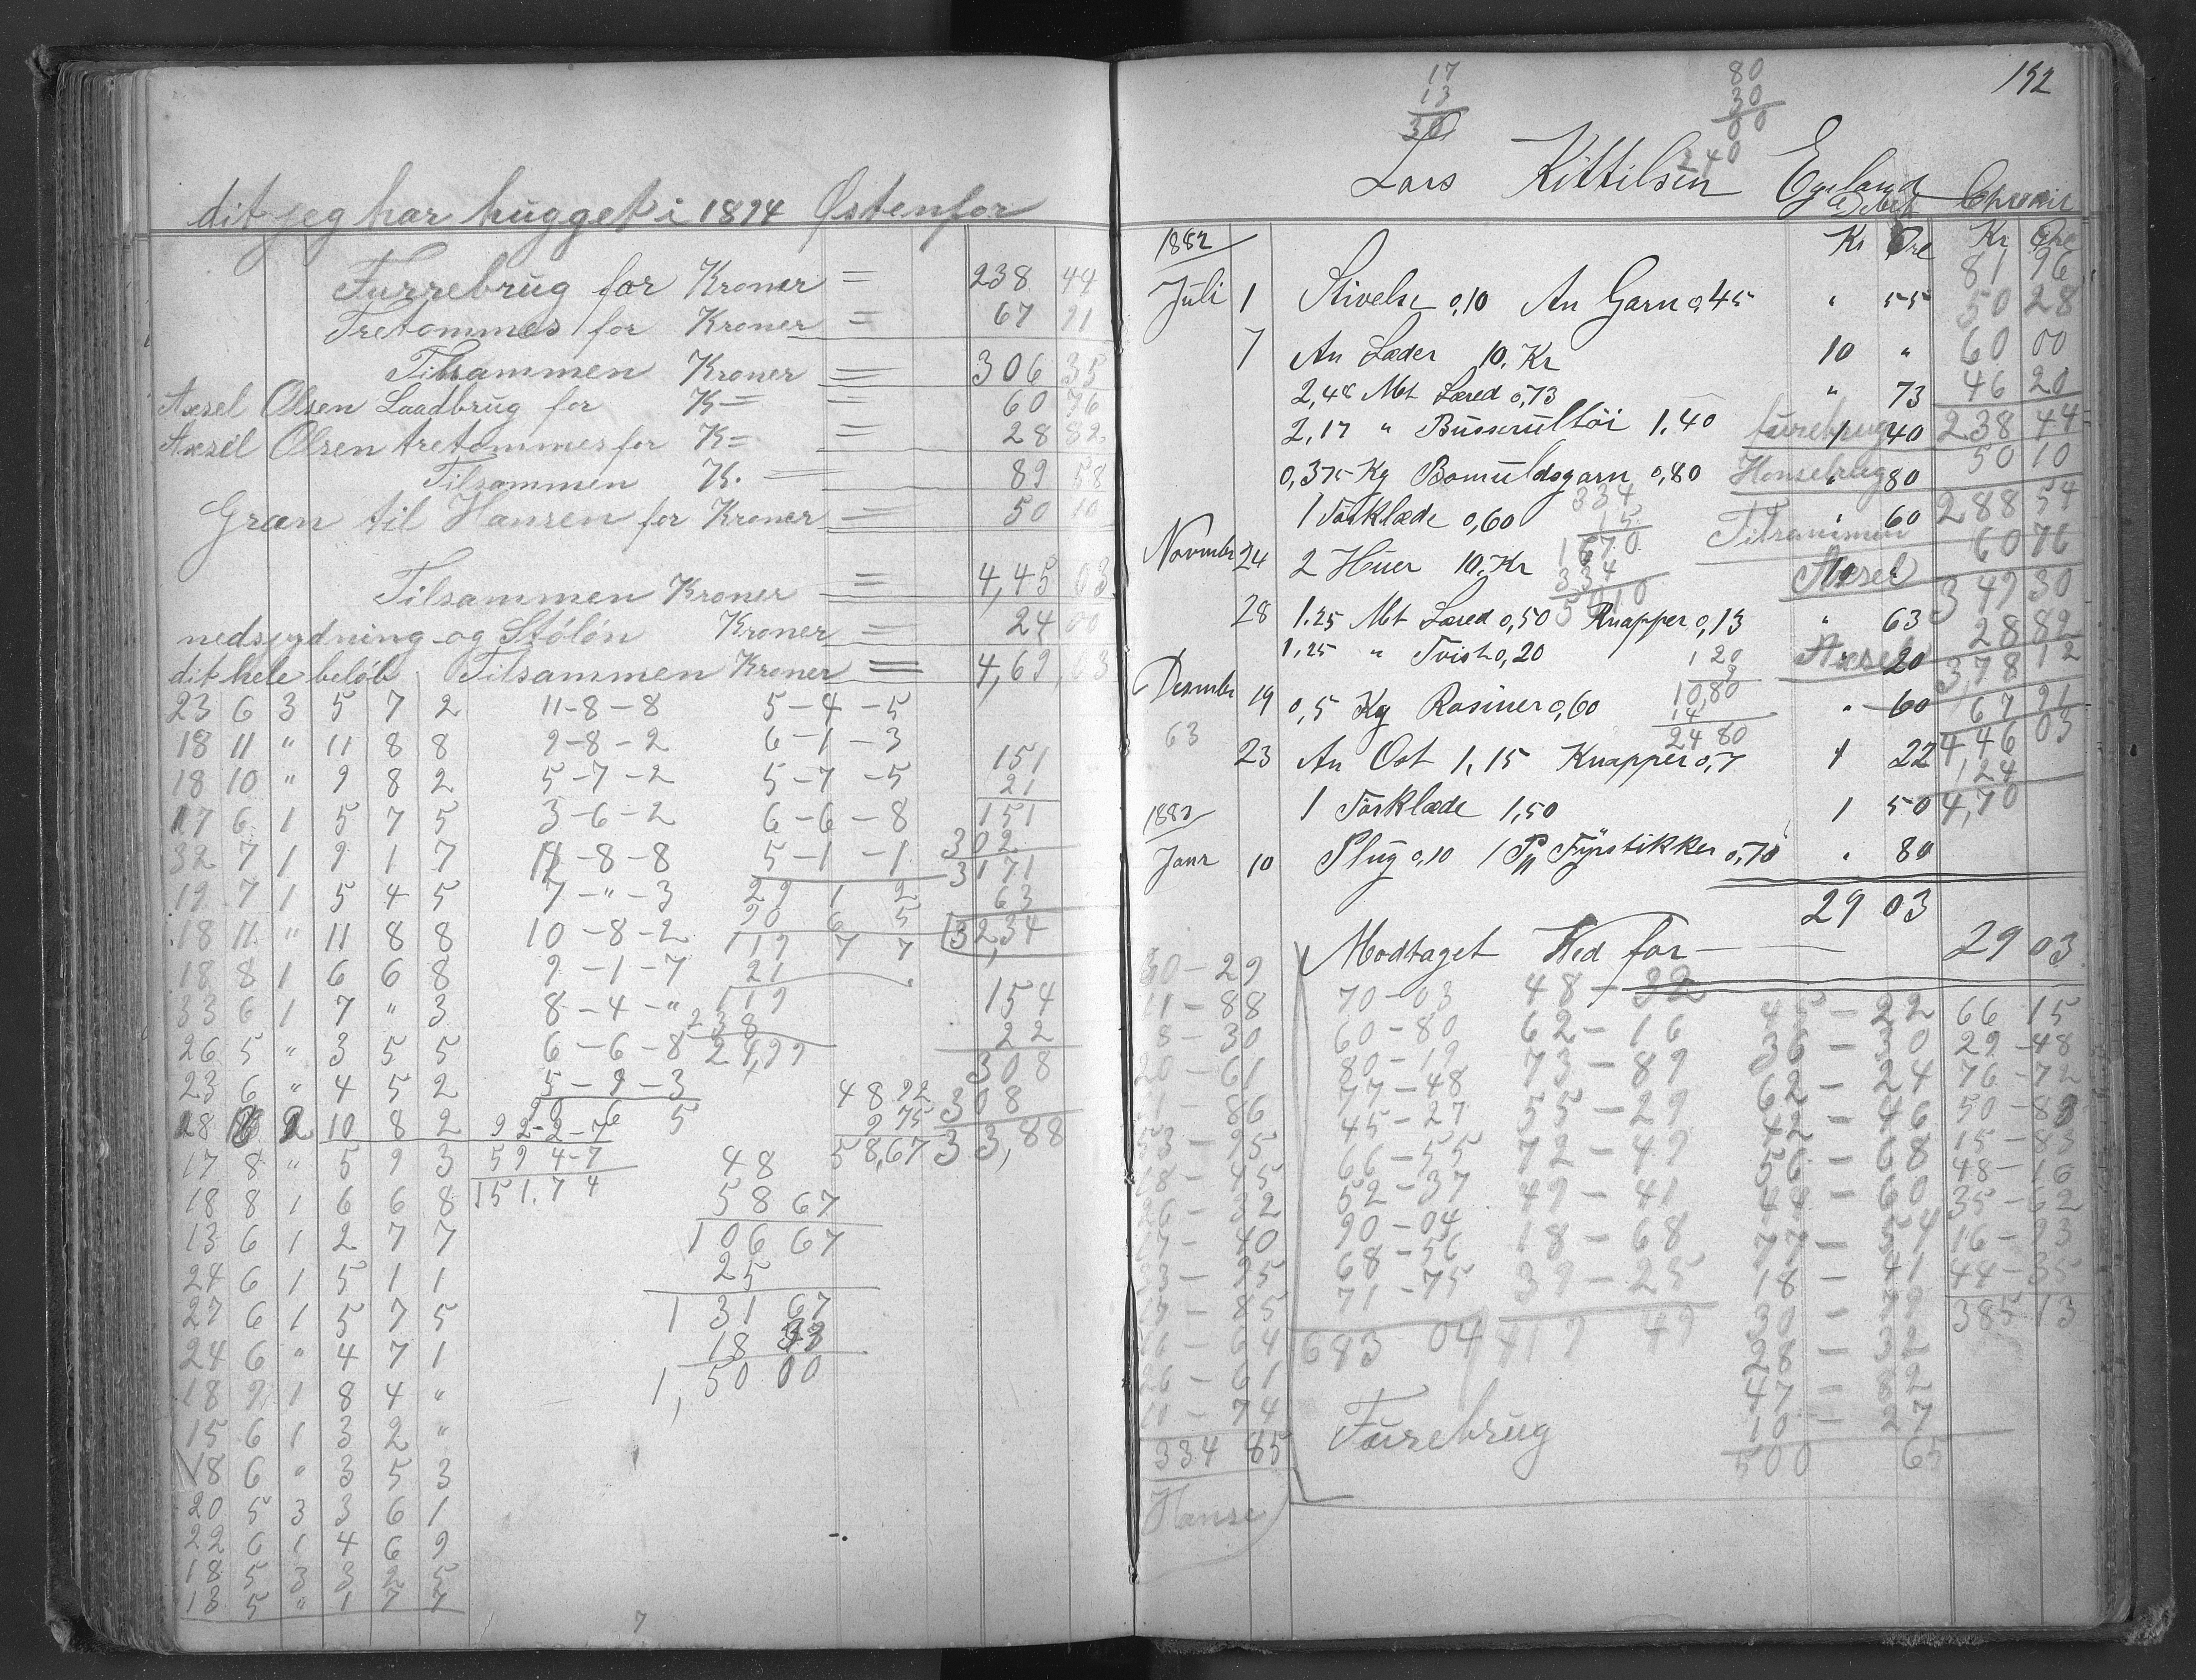 dit jeg har hugget i 1894 Østenfor
Furrebrug for Kroner = 238 44
Tretommes for Kroner = 67 91
Tilsammen Kroner = 306 35
Axsel Olsen Laadbrug for K = = 60 76
Axsel Olsen tretommes for K = = 28 82
Tilsammen K. = 89 58
Gran til Hansen for Kroner = 50 10
Tilsammen Kroner = 4,45 03
nedsrydning og Stólón Kroner = 24 00
dit hele beløb Tilsammen Kroner = 4,69,63
23 6 3 5 7 2 11-8-8 5-4-5
18 11 " 11 8 8 9-8-2 6-1-3
18 10 " 9 8 2 5-7-2 5-7-5
17 6 1 5 7 5 3-6-2 6-6-8
32 7 1 9 1 7 11-8-8 5-1-1
19 7 1 5 4 5 7-"-3 29 1 2
18 11 " 11 8 8 10-8-2 90 6 5
119 7 7
18 8 1 6 6 8 9-1-7 21
33 6 1 7 " 3 8-4-" 119
238
26 5 " 3 5 5 6-6-8 24,99
23 6 " 4 5 2 5-9-3
90 6 5
28 8 2 10 8 2 92-2-7
17 8 " 5 9 3 59 4-7
18 8 1 6 6 8 151.7 4
13 6 1 2 7 7
24 6 1 5 1 1
27 6 1 5 7 5
24 6 " 4 7 1
18 9 1 8 4 "
15 6 1 3 2 "
18 6 " 3 5 3
20 5 3 3 6 1
22 6 1 4 6 9
18 5 3 3 2 5
13 5 " 1 7 7
151
21
151
302
3171
63
32,34
154
22
308
308
33,88
48 92
9 75
58,67
48
58 67
106 67
25
131 67
18 33
1,50 00
7
152
17
13
30
80
30
00
240
Lars Kittilsen Egeland
Debet
Kr Øre Kr Øre
1882
Juli 1 Stivelse 0,10 An Garn 0,45 " 55
7 An Læder 10. Kr 10 "
2,48 Mt Læred 0,73 " 73
2,17 " Busserultöi 1.40 1 40
0,375 Kg Bomuldsgarn 0,80 " 80
1 Forklæde 0,60 " 60
Novmbr 24 2 Huer 10. Kr
28 1.25 Mt Læred 0,50 Knapper 0,13 " 63
1,25 " Tvist 0,20 " 20
Desmbr 19 0,5 Kg Rosiner 0,60 " 60
63
23 An Ost 1,15 Knapper 0,7 1 22
1 Forklæde 1,50 1 50
1883
Janr 10 Plug 0,10 1 Pk Fyrstikker 0,70 " 80
29 03
Modtaget Ved for 29 03
81 96
50 28
60 00
46 20
furebrug 238 44
Hansebrug 50 10
288 54
Tilsammen 60 76
Axsel 349 30
28 82
Axsel 3,78 12
67 91
4,46 03
1,24
4,70
334
15
1670
334
5010
120
9
10,80
14
24 80
30-29
11-88
8-30
20-61
53-95
18-45
26-32
17-40
16-64
26-61
11-74
334 85
Hanse
70-03
60-80
80-19
77-48
45-27
66-55
52-37
90-04
68-56
71-75
683 04
48-32
62-16
73-89
55-29
72-49
49-41
18-68
39-25
419 49
45-22
62-24
42-46
56-68
77-54
28-32
47-82
10-27
500 65
66 15
29-48
76-72
50-83
15-83
48-10
35-62
16-93
44-35
385 13
Furebrug